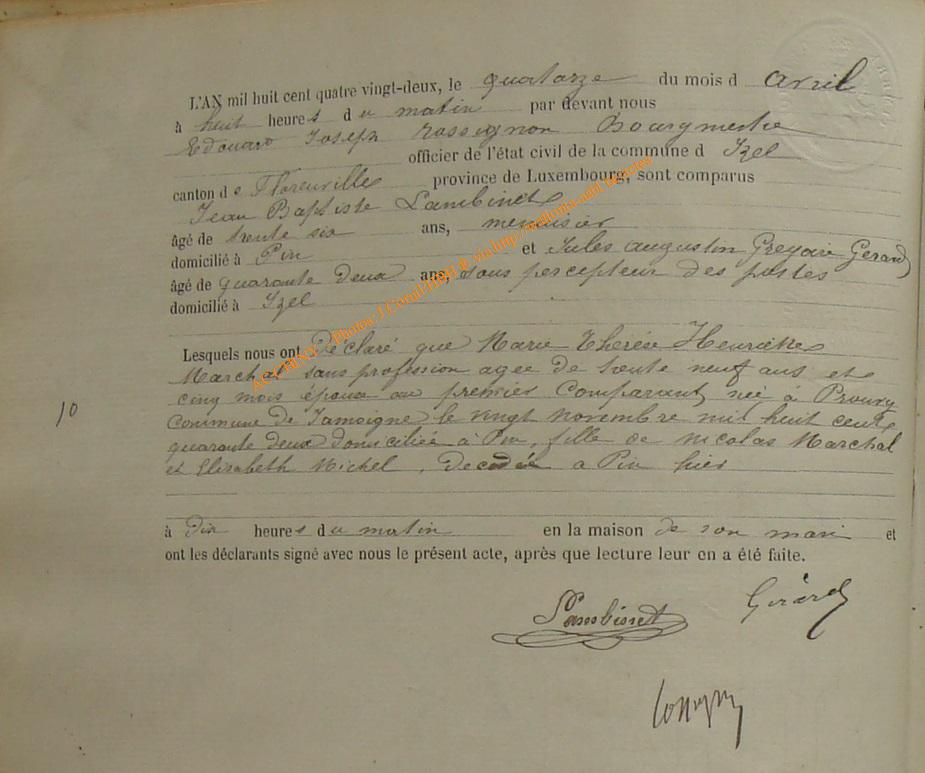 L'AN mil huit cent quatre vingt-deux, le quatorze du mois d avril
à huit heures du matin par devant nous
Edouard Joseph Rossignon Bourgmestre
officier de l'état civil de la commune d Izel
canton de Florenville province de Luxembourg, sont comparus
Jean Baptiste Lambinet
âgé de trente six ans, menuisier
domicilié à Pin et Jules Augustin Grégoire Gerard
âgé de quarante deux ans, sous percepteur des postes
domicilié à Izel
Lesquels nous ont Déclaré que Marie Thérèse Henriette
Marchal sans profession agée de trente neuf ans et
10
cinq mois épouse au premier comparant, née à Prouvy
Commune de Jamoigne le vingt novembre mil huit cent
quarante deux domiciliée à Pin, fille de Nicolas Marchal
et Elisabeth Michel, décédée a Pin hier
à dix heures du matin en la maison de son mari et
ont les déclarants signé avec nous le présent acte, après que lecture leur en a été faite.
Lambinet Gérard
Rossignon